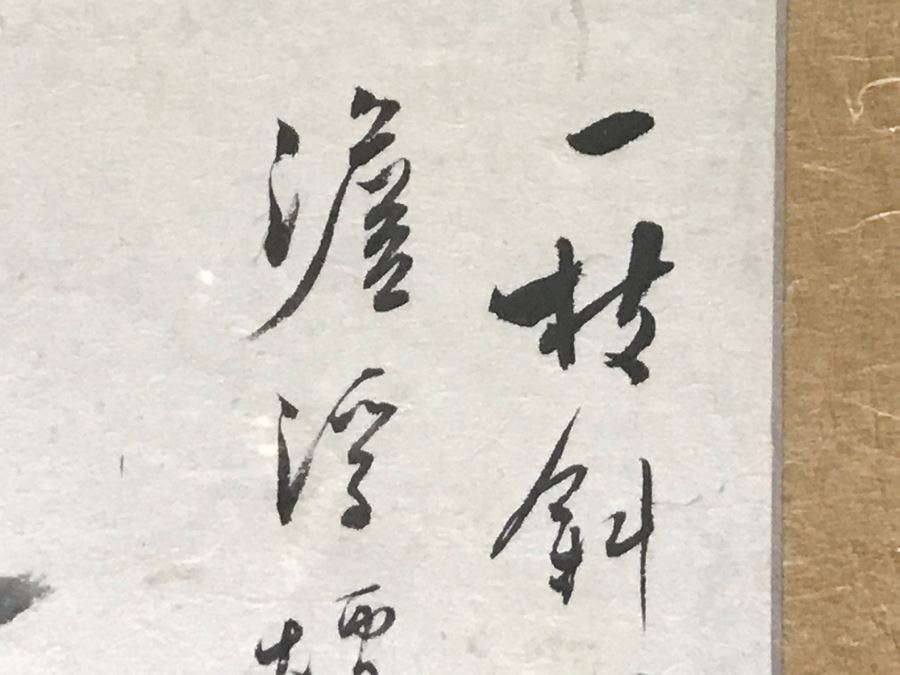 一枝斜
澹浮